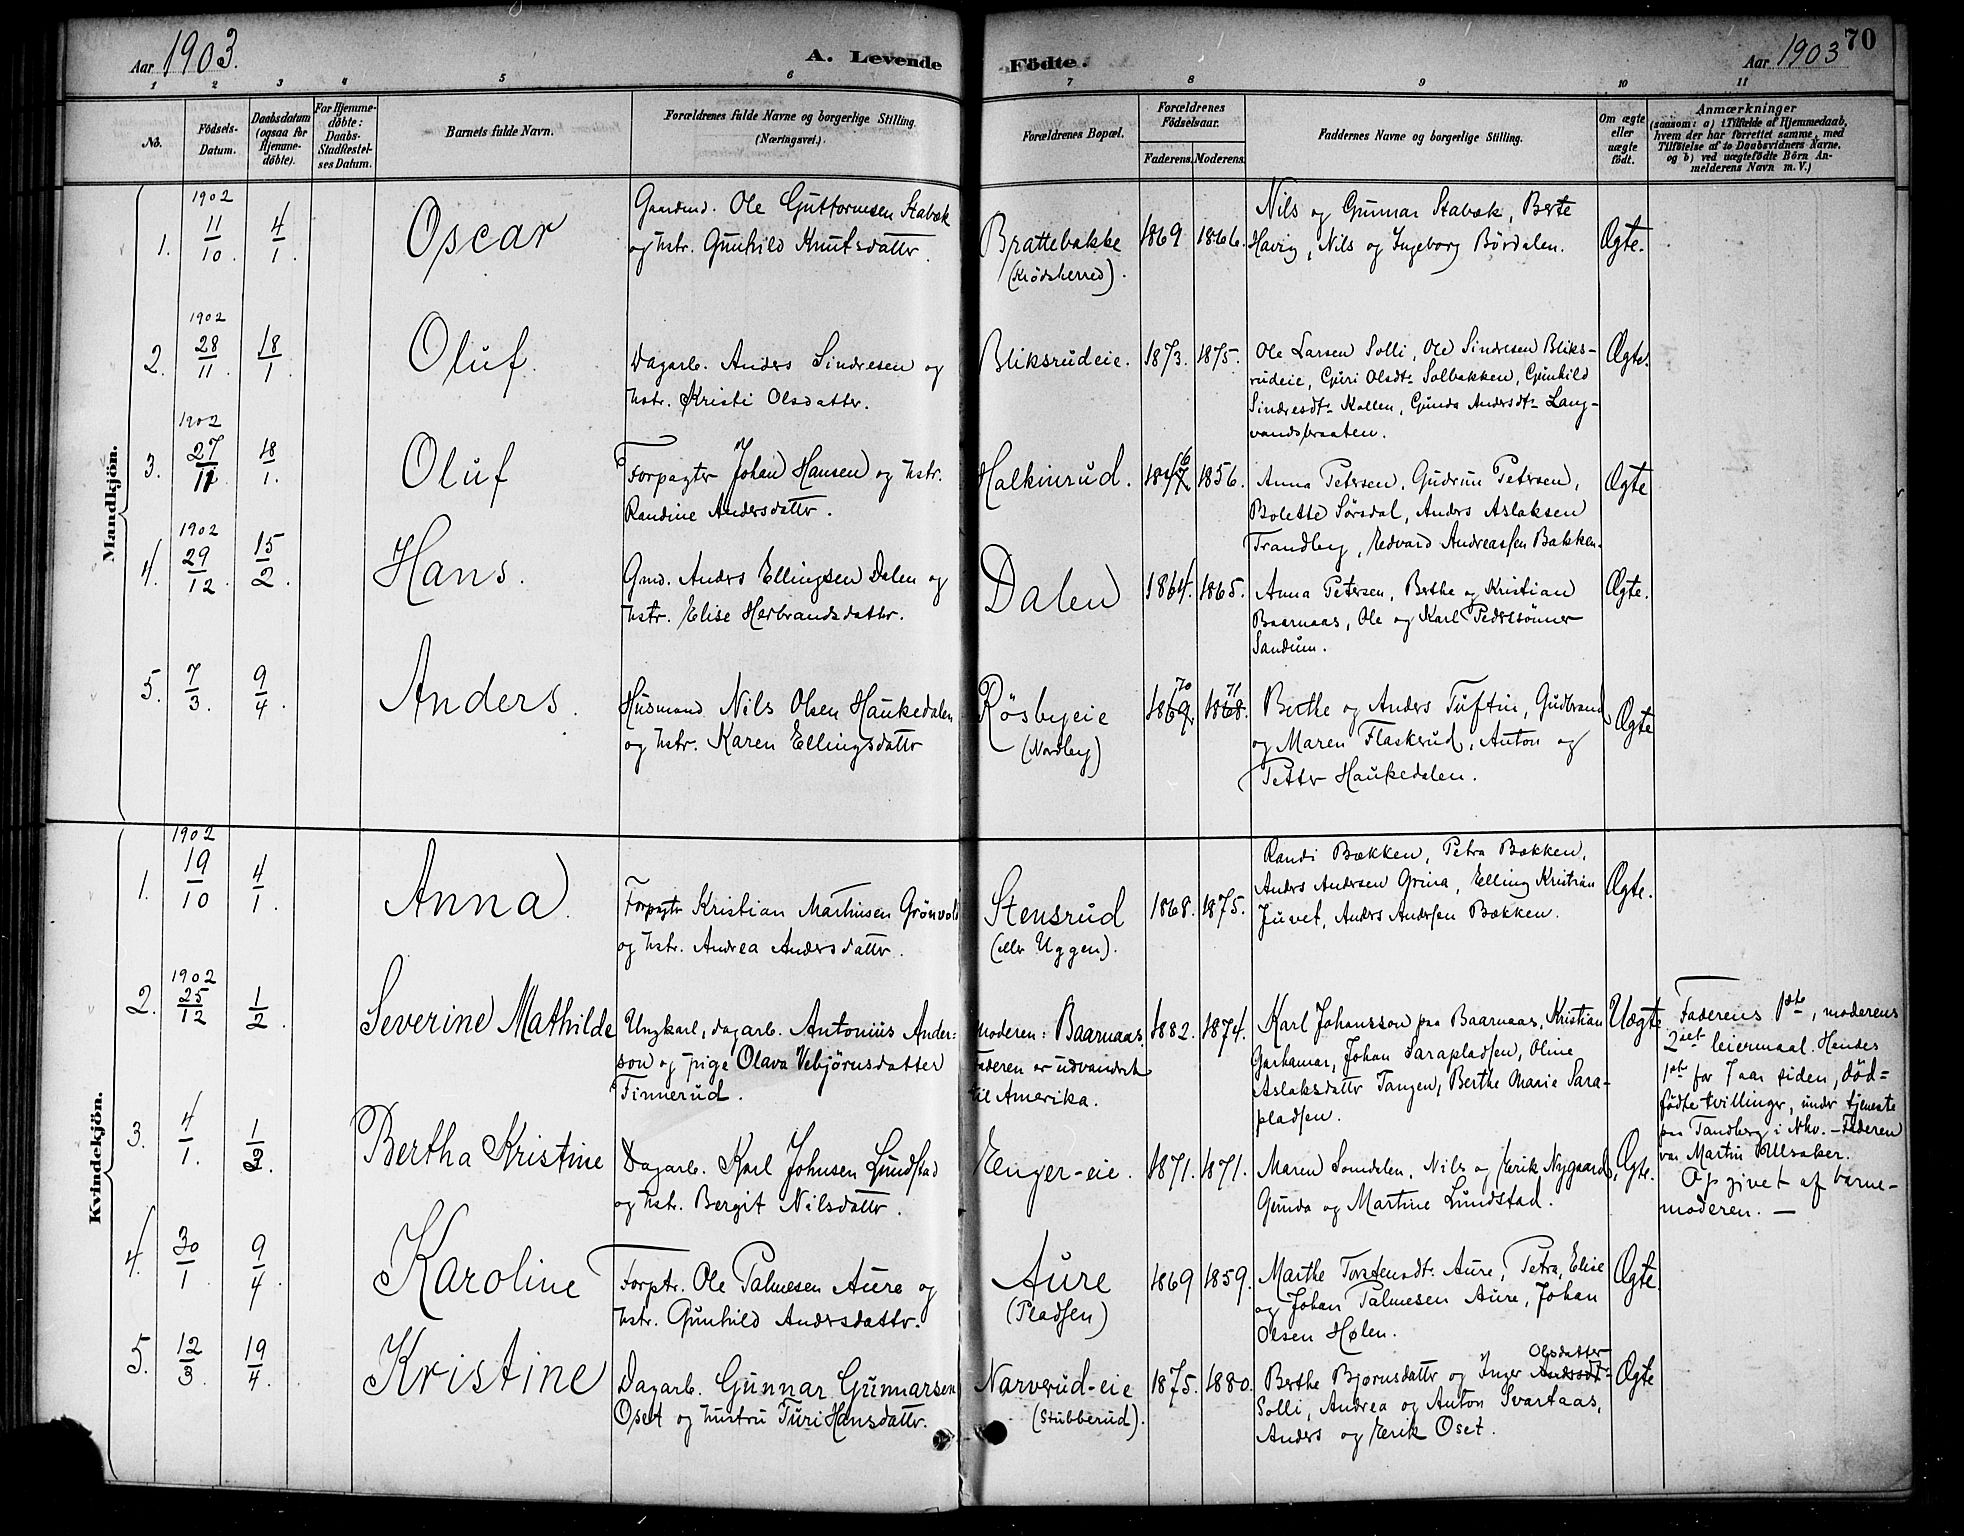 Aar 1903.
A. Levende Födte.
Aar 1903
70
1 2 3 4 5 6 7 8 9 10 11
No.
Födsels-Datum.
Daabsdatum (ogsaa for Hjemme-döbte).
For Hjemme-döbte: Daabs-Stadfæstel-ses Datum.
Barnets fulde Navn.
Forældrenes fulde Navne og borgerlige Stilling. (Næringsvei.)
Forældrenes Bopæl.
Forældrenes Födselsaar.
Faderens. Moderens.
Faddernes Navne og borgerlige Stilling.
Om ægte eller uægte födt.
Anmærkninger
(saasom: a) i Tilfælde af Hjemmedaab, hvem der har forrettet samme, med Tilföielse af to Daabsvidners Navne. og b) ved uægtefödte Börn An-melderens Navn m. V.)
Mandkjön.
1. 1902 11/10. 4/1. Oscar
Gaardmd. Ole Guttormsen Stabæk
og hstr. Gunhild Knutsdatter.
Brattebakke
(Krødsherred).
1869. 1866.
Nils og Gunnar Stabæk, Berte
Havig, Nils og Ingeborg Bördalen.
Ægte.
2. 1902 28/11. 18/1. Oluf.
Dagarb. Anders Sindresen og
hstr. Kristi Olsdatter.
Bliksrudeie. 1873. 1875.
Ole Larsen Solli, Ole Sindresen Bliks-
rudeie, Guri Olsdtr Solbakken, Gunhild
Sindresdtr Kollen, Gunda Andersdtr Lang-
vandsbraaten.
Ægte.
3. 1902 27/11. 18/1. Oluf
Forpagter Johan Hansen og hstr.
Randine Andersdatter.
Halkinrud. 1856.
Anna Petersen, Gudrun Petersen,
Bolette Sørsdal, Anders Aslaksen
Trandby, Edvard Andreassen Bakken.
Ægte
4. 1902 29/12. 15/2. Hans.
Gmd. Anders Ellingsen Dalen og
hstr. Elise Herbrandsdatter.
Dalen 1864. 1865.
Anna Petersen, Berthe og Kristian
Baarnaas, Ole og Karl Pederssønner
Sandum.
Ægte.
5. 7/3. 9/4. Anders.
Husmand Nils Olsen Haukedalen
og hstr. Karen Ellingsdatter
Røsbyeie
(Nordby)
70 1869. 71 1868.
Berthe og Anders Tuftin, Gudbrand
og Maren Flaskerud, Anton og
Petter Haukedalen.
Ægte
Kvindekjön.
1. 1902 19/10 4/1. Anna.
Forpagtr Kristian Martinsen Grönvold
og hstr. Andrea Andersdatter.
Stensrud
(eller Uggen).
1868. 1875.
Randi Bækken, Petra Bækken,
Anders Andersen Grina, Elling Kristian
Juvet, Anders Andersen Bækken.
Ægte.
2. 1902 25/12. 1/2. Severine Mathilde
Ungkarl, dagarb. Antonius Ander-
son og pige Olava Vebjörnsdatter
Finnerud.
Moderen: Baarnaas.
Faderen er udvandret
til Amerika.
1882. 1874.
Karl Johansson paa Baarnaas, Kristian
Garhamar, Johan Sarapladsen, Oline
Aslaksdatter Tangen, Berthe Marie Sara-
pladsen.
Uægte
Faderens 1ste, moderens
2det leiermaal. Hendes
1ste for 7 aar siden, död-
födte tvillinger, under tjeneste
paa Tandberg i Nhv. – Faderen
var Martin Ullsaker.
Opgivet af barne-
moderen. –
3. 4/1. 1/2. Bertha Kristine
Dagarb. Karl Johnsen Lundstad
og hstr. Bergit Nilsdatter.
Enger-eie. 1871. 1871.
Maren Somdalen, Nils og Erik Nygaard,
Gunda og Martine Lundstad.
Ægte.
4. 30/1. 9/4. Karoline
Forptr. Ole Palmesen Aure og
hstr. Gunhild Andersdatter.
Aure
(Pladsen)
1869 1859.
Marthe Torstensdtr. Aure, Petra, Elise
og Johan Palmesen Aure, Johan
Olsen Hølen.
Ægte.
5. 12/3. 19/4. Kristine
Dagarb. Gunnar Gunnarsen
Oset og hustru Turi Hansdatter.
Narverud-eie
(Stubberud).
1875. 1880.
Olsdatter
Berthe Bjørnsdatter og Inger Andersdtr
Solli, Andrea og Anton Svartaas,
Anders og Erik Oset.
Ægte